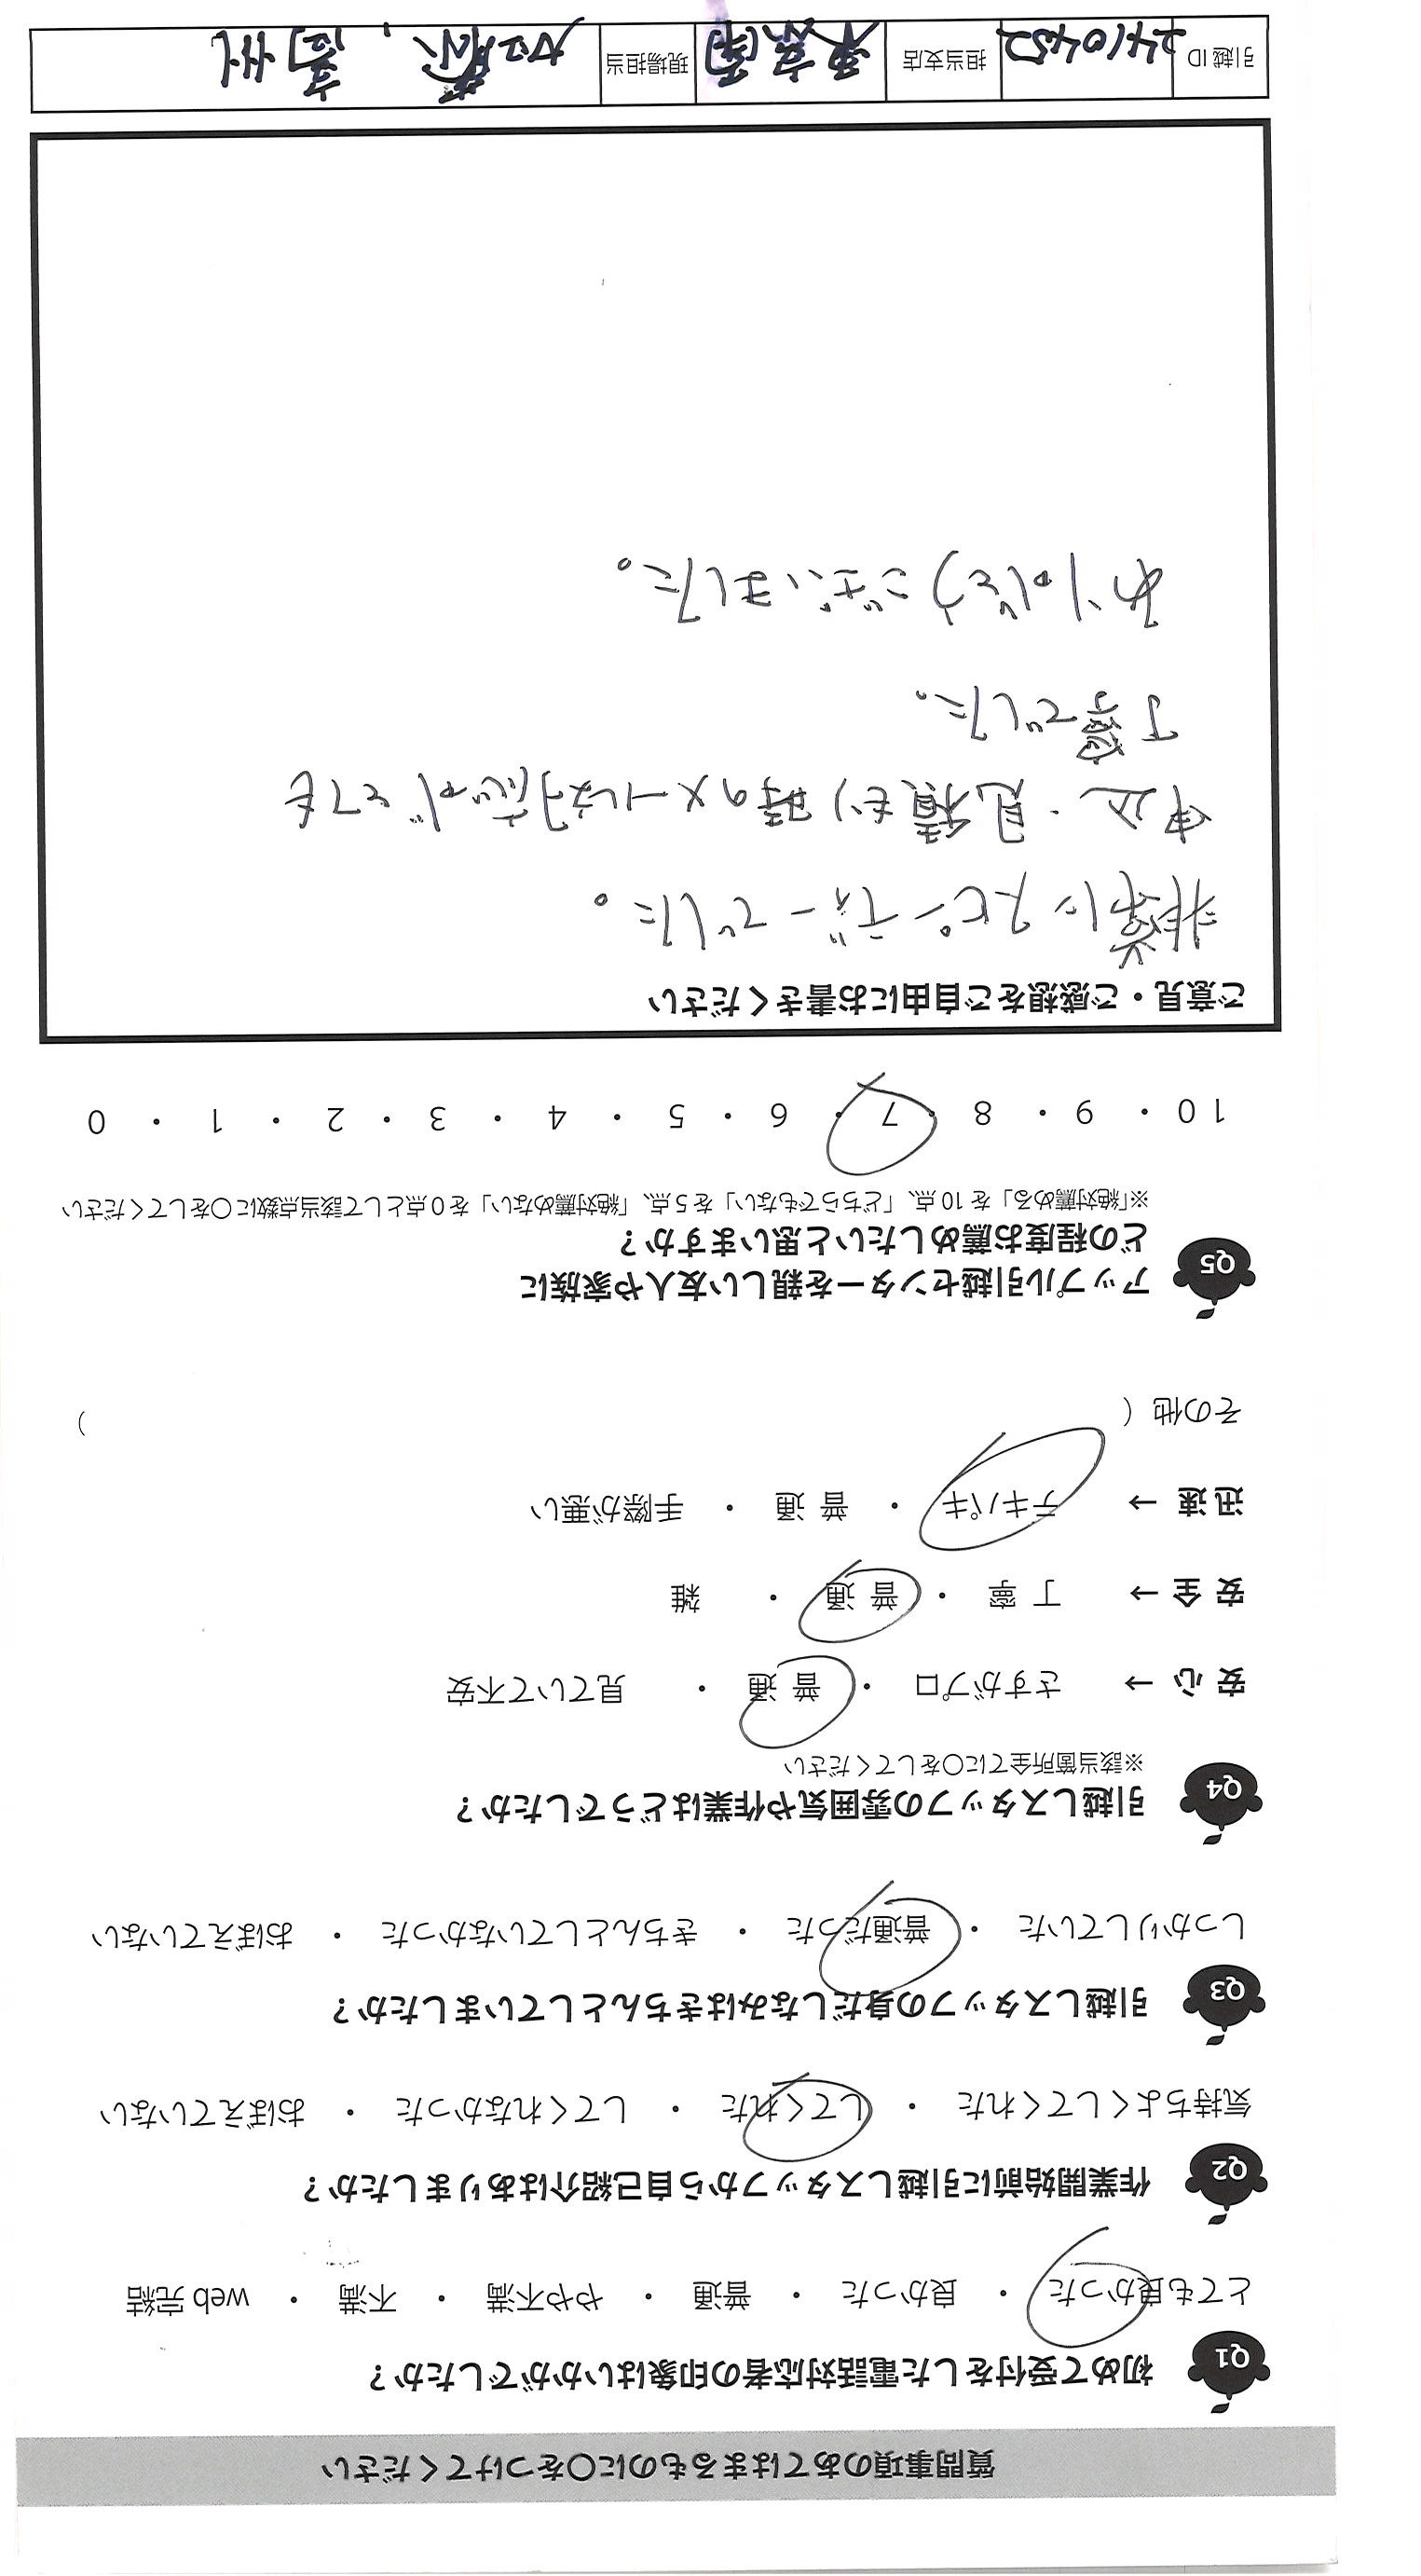 質問事項のあてはまるものに○をつけてください
Q1 初めて受付をした電話対応者の印象はいかがでしたか？
とても良かった ・ 良かった ・ 普通 ・ やや不満 ・ 不満 ・ web 完結
Q2 作業開始前に引越しスタッフから自己紹介はありましたか？
気持ちよくしてくれた ・ してくれた ・ してくれなかった ・ おぼえていない
Q3 引越しスタッフの身だしなみはきちんとしていましたか？
しっかりしていた ・ 普通だった ・ きちんとしていなかった ・ おぼえていない
Q4 引越しスタッフの雰囲気や作業はどうでしたか？
※該当箇所全てに○をしてください
安心 → さすがプロ ・ 普通 ・ 見ていて不安
安全 → 丁寧 ・ 普通 ・ 雑
迅速 → テキパキ ・ 普通 ・ 手際が悪い
その他（ ）
Q5 アップル引越センターを親しい友人や家族に
どの程度お薦めしたいと思いますか？
※「絶対薦める」を 10 点、「どちらでもない」を 5 点、「絶対薦めない」を 0 点として該当点数に○をしてください
10 ・ 9 ・ 8 ・ 7 ・ 6 ・ 5 ・ 4 ・ 3 ・ 2 ・ 1 ・ 0
ご意見・ご感想をご自由にお書きください
非常にスピーディーでした。
申込・見積もり時のメール対応がとても
丁寧でした。
ありがとうございました。
引越 ID 2410452 担当支店 東京南 現場担当 加藤、高州